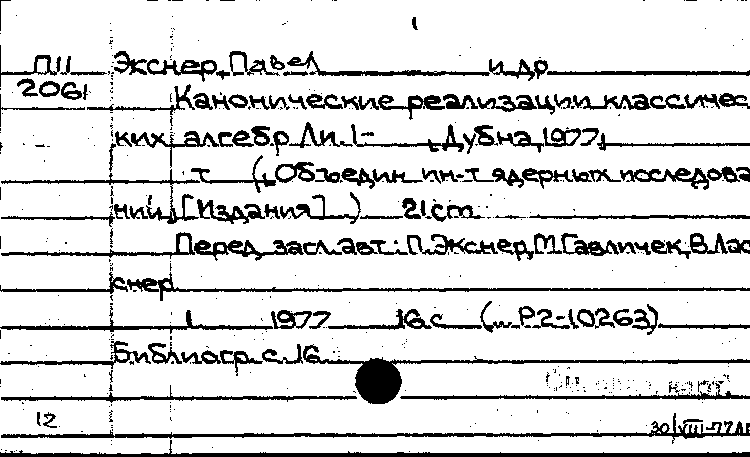 1
П11 Экснер, Павел и др
2061 Канонические реализации классичес
ких алгебр Ли. 1- Дубна, 1977
т (Объедин ин-т ядерных исследова
ний [Издания] ) 21 cm
Перед загл. авт.: П. Экснер, М. Гавличек, В. Лас
снер
1 1977 16 с ( P2-10263)
Библиогр с. 16
карт.
12
30/VIII-77